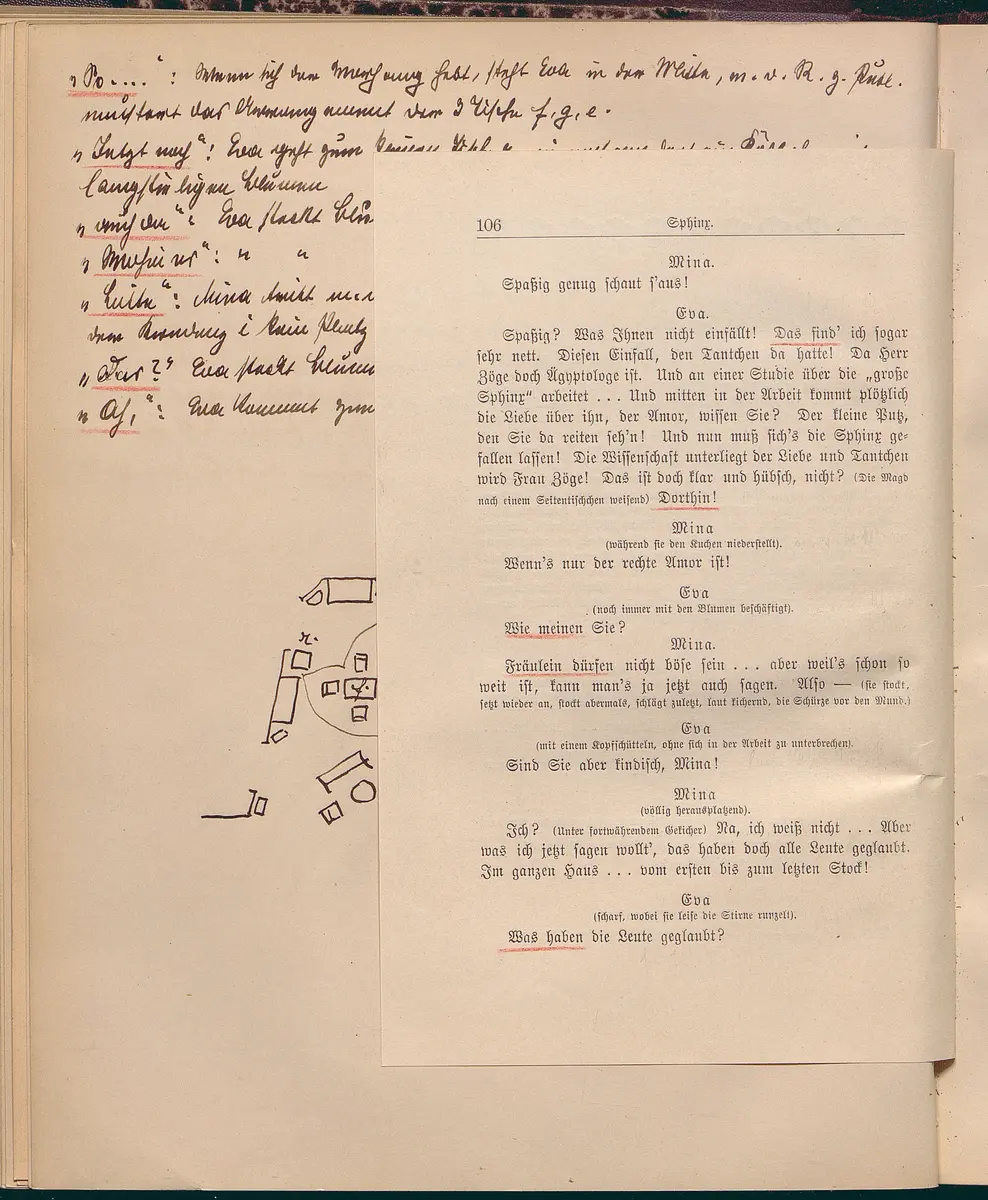 „So....“: Wenn sich der Vorhang hebt, steht Eva in der Mitte, m. d. R. z. Publ.
mustert das Arrangement der 3 Tische f, g, e.
„Jetzt noch“: Eva geht zum
langstieligen Blumen
„auch da“: Eva steckt Blu
„Mohnes“: " "
„Leute“: Mina tritt
kein Platz
„Das?“ Eva steckt Blum
„Ah,“: Eva kommt zum
r.
106 Sphinx.
Mina.
Spaßig genug schaut s'aus!
Eva.
Spaßig? Was Ihnen nicht einfällt! Das find' ich sogar
sehr nett. Diesen Einfall, den Tantchen da hatte! Da Herr
Zöge doch Ägyptologe ist. Und an einer Studie über die „große
Sphinx“ arbeitet ... Und mitten in der Arbeit kommt plötzlich
die Liebe über ihn, der Amor, wissen Sie? Der kleine Putz,
den Sie da reiten seh'n! Und nun muß sich's die Sphinx ge-
fallen lassen! Die Wissenschaft unterliegt der Liebe und Tantchen
wird Frau Zöge! Das ist doch klar und hübsch, nicht? (Die Magd
nach einem Seitentischchen weisend) Dorthin!
Mina
(während sie den Kuchen niederstellt).
Wenn's nur der rechte Amor ist!
Eva
(noch immer mit den Blumen beschäftigt).
Wie meinen Sie?
Mina.
Fräulein dürfen nicht böse sein ... aber weil's schon so
weit ist, kann man's ja jetzt auch sagen. Also — (sie stockt,
setzt wieder an, stockt abermals, schlägt zuletzt, laut kichernd, die Schürze vor den Mund.)
Eva
(mit einem Kopfschütteln, ohne sich in der Arbeit zu unterbrechen).
Sind Sie aber kindisch, Mina!
Mina
(völlig herausplatzend).
Ich? (Unter fortwährendem Gekicher) Na, ich weiß nicht ... Aber
was ich jetzt sagen wollt', das haben doch alle Leute geglaubt.
Im ganzen Haus ... vom ersten bis zum letzten Stock!
Eva
(scharf, wobei sie leise die Stirne runzelt).
Was haben die Leute geglaubt?